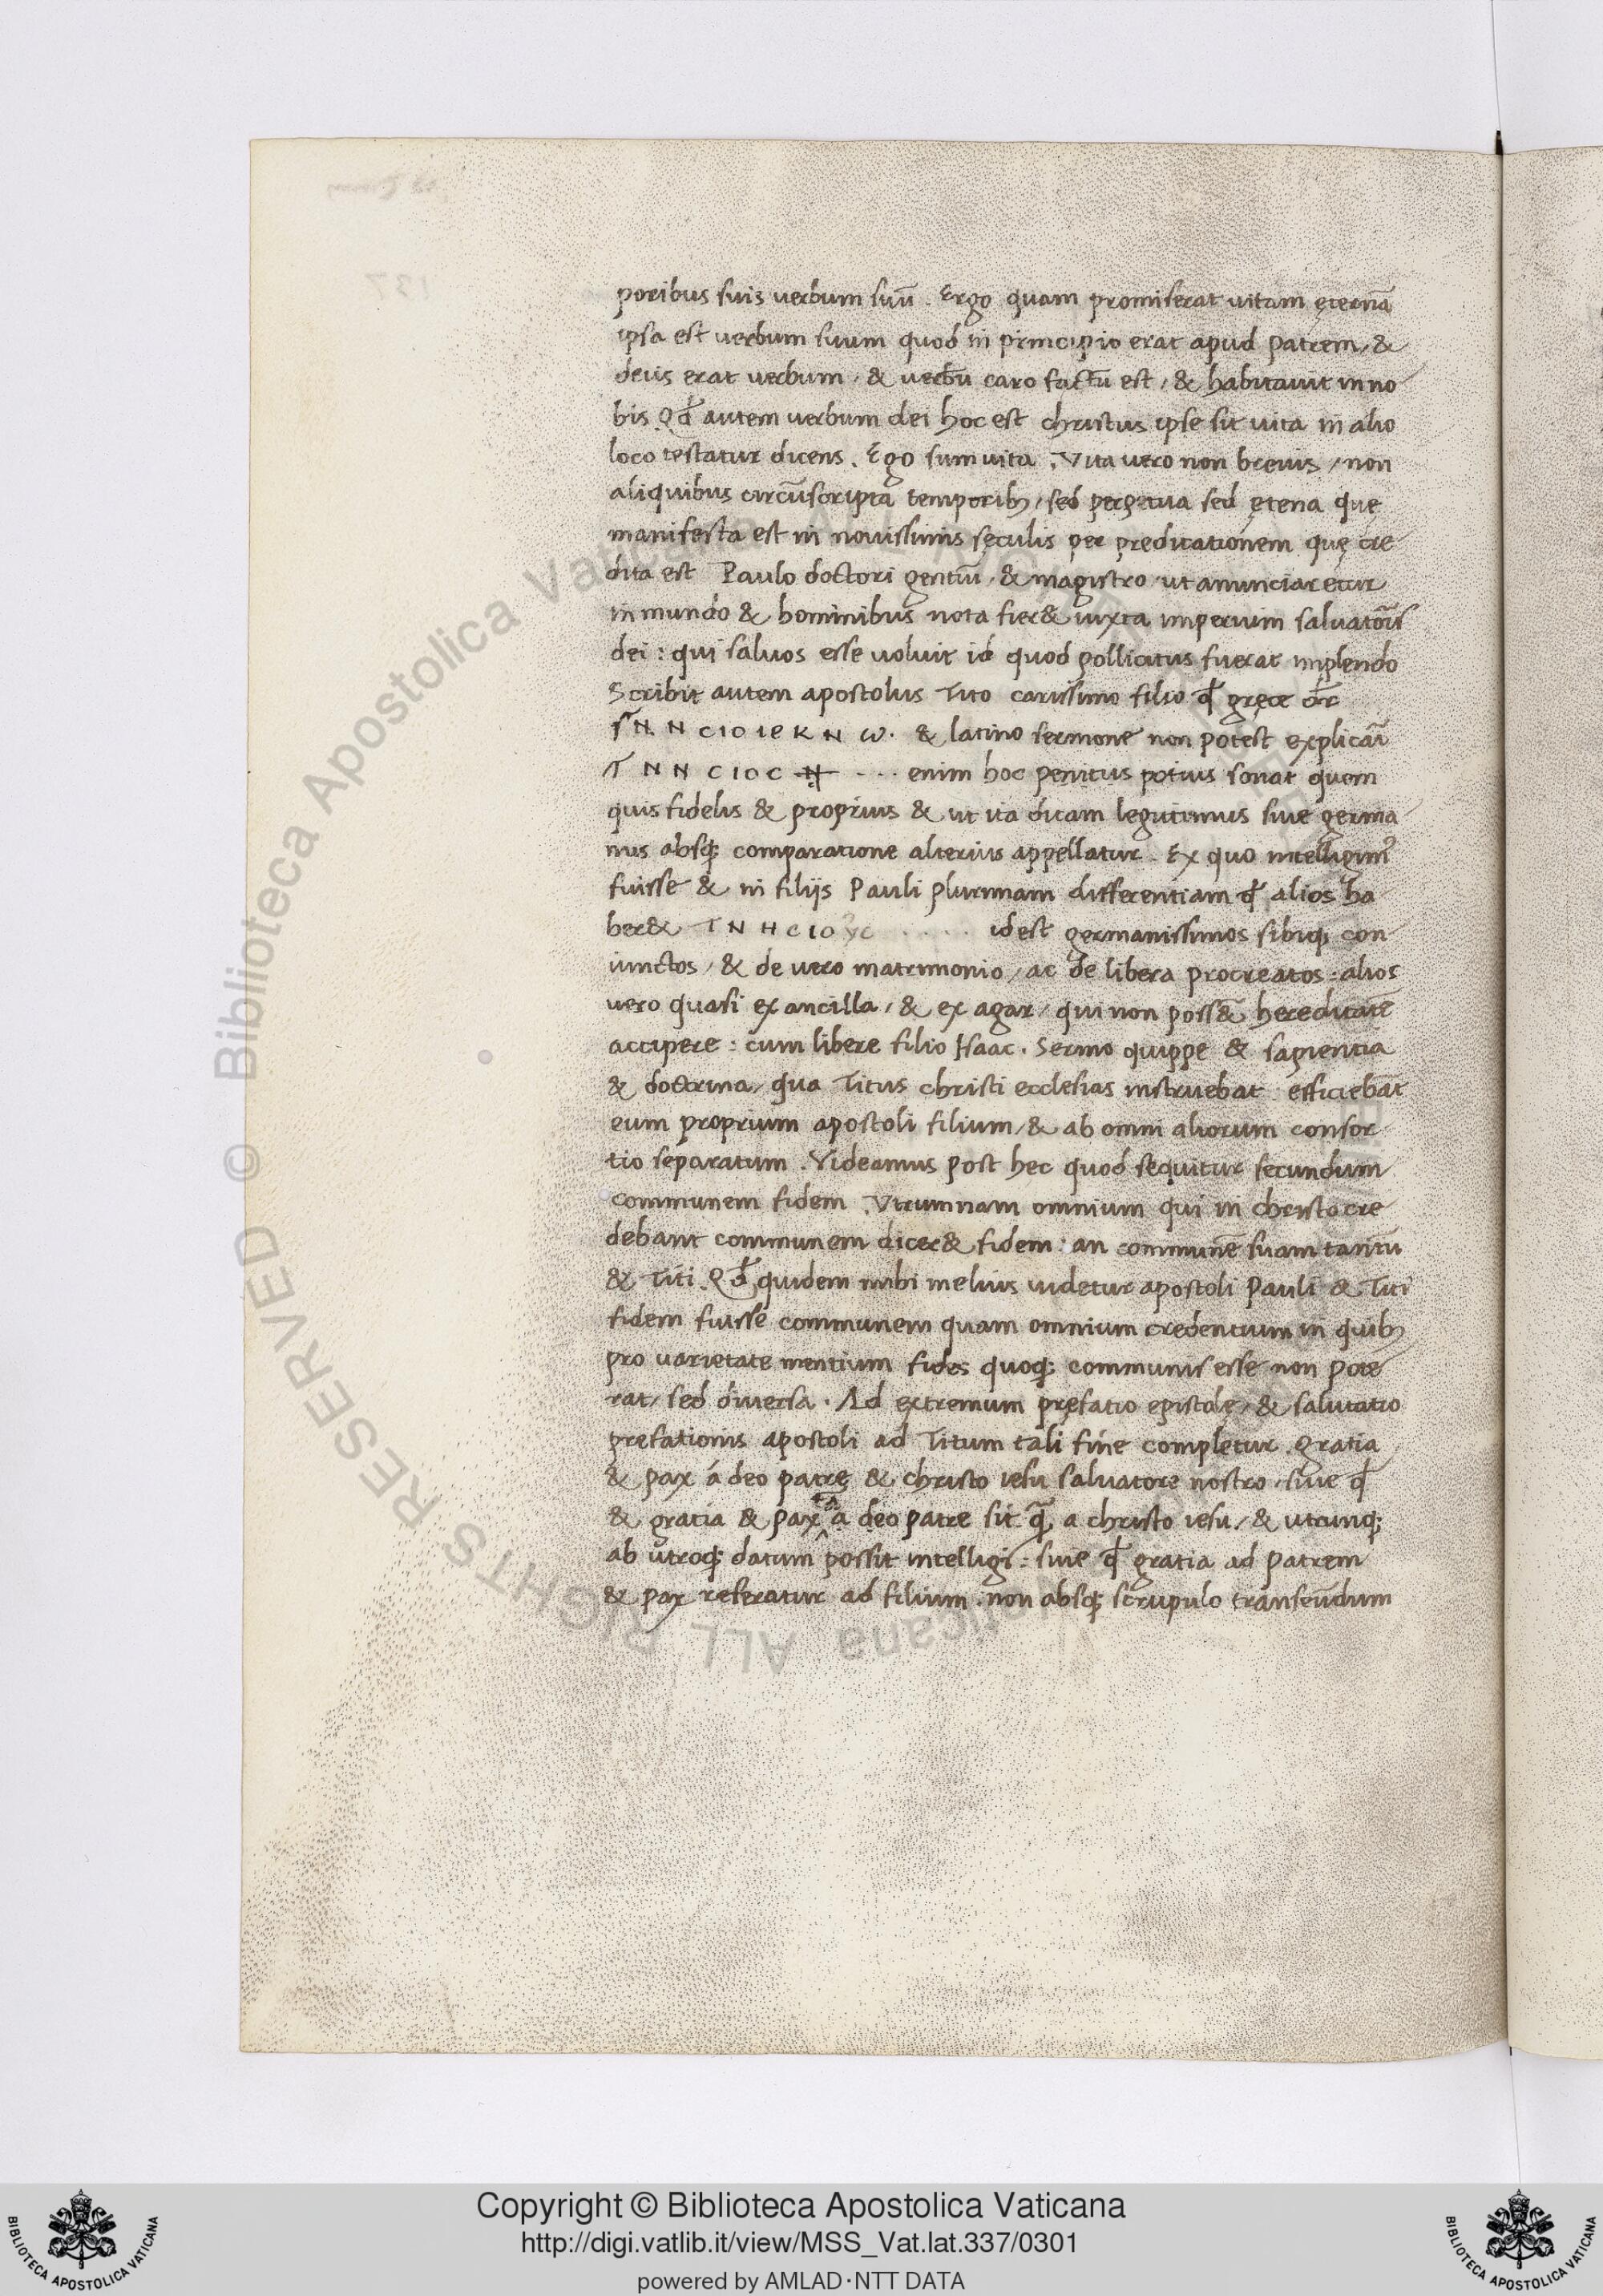 poribus suis verbum suū. Ergo quam promiserat vitam ęternā
ipsa est verbum suum quod in principio erat apud patrem, &
deus erat verbum, & verbū caro factū est, & habitavit in no
bis. Qđ autem verbum dei hoc est christus ipse sit vita in alio
loco testatur dicens. Ego sum vita. Vita vero non brevis, non
aliquibus circūscripta temporibꝫ, sed perpetua sed ętena quę
manifesta est in novissimis sęculis per predicationem quę cre
dita est Paulo doctori gentiū, & magistro, ut anunciaretur
in mundo & hominibus nota fier& iuxta imperium salvatoīs
dei: qui salvos esse voluit id quod pollicitus fuerat implendo
Scribit autem apostolus Tito carissimo filio ꝙ gręce dr̄
N N C I O I E K N ω. & latino sermone non potest explicāi
T N N C I O C N ... enim hoc penitus potius sonat quem
quis fidelis & proprius & ut ita dicam legitimus sive germa
nus absqꝫ comparatione alterius appellatur. Ex quo intelligim⁹
fuisse & in filijs Pauli plurimam differentiam ꝙ alios ha
ber& T N H C I O Y C ..... idest germanissimos sibiqꝫ con
iunctos, & de vero matrimonio, ac de libera procreatos: alios
vero quasi ex ancilla, & ex agar, qui non poss& hereditatē
accipere: cum liberę filio Isaac. Sermo quippe & sapientia
& doctrina, qua Titus christi ecclesias instruebat efficiebat
eum proprium apostoli filium, & ab omni aliorum consor
tio separatum. Videamus post hec quod sequitur secundum
communem fidem. Utrumnam omnium qui in christo cre
debant communem dicer& fidem: an communē suam tantū
& Titi. Qđ quidem mihi melius videtur apostoli Pauli & Titi
fidem fuisse communem quam omnium credentium in quibꝫ
pro varietate mentium fides quoqꝫ communis esse non pote
rat, sed diversa. Ad extremum pręfatio epistolę, & salutatio
pręfationis apostoli ad Titum tali fine completur. gratia
& pax á deo patre & christo iesu salvatore nostro. sive ꝙ
& gratia & pax tā a deo patre sit q̄ȝ a christo iesu, & utrunqꝫ
ab utroqꝫ datum possit intelligi: sive ꝙ gratia ad patrem
& pax referatur ad filium. non absqꝫ scrupulo transeūdum
© Biblioteca Apostolica Vaticana ALL RIGHTS RESERVED
Copyright © Biblioteca Apostolica Vaticana
http://digi.vatlib.it/view/MSS_Vat.lat.337/0301
powered by AMLAD·NTT DATA
BIBLIOTECA APOSTOLICA VATICANA
BIBLIOTECA APOSTOLICA VATICANA